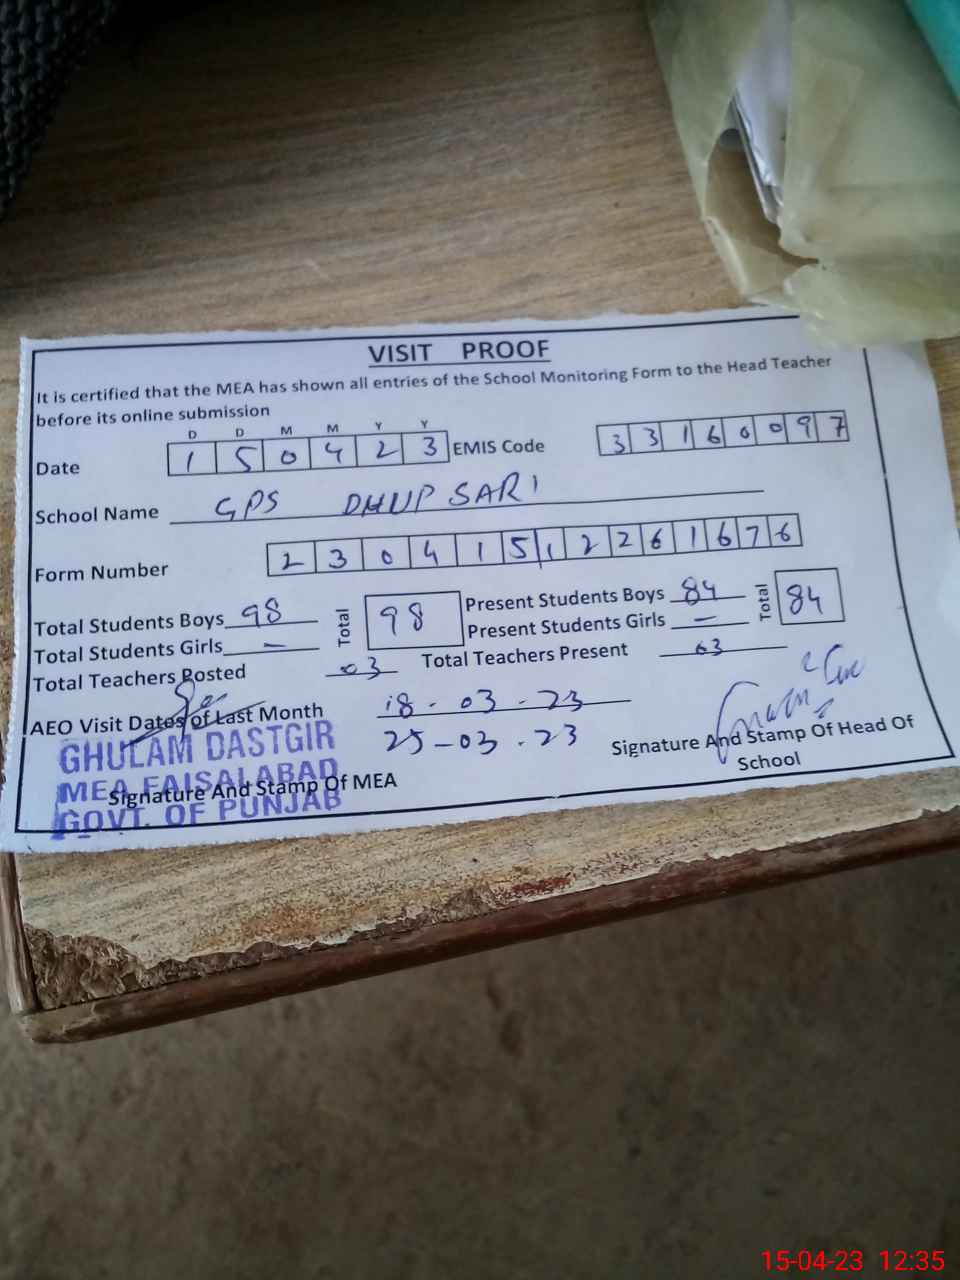 VISIT PROOF
It is certified that the MEA has shown all entries of the School Monitoring Form to the Head Teacher
before its online submission
D D M M Y Y
Date 1 5 0 4 2 3 EMIS Code 3 3 1 6 0 0 9 7
School Name GPS DHUP SARI
Form Number 2 3 0 4 1 5 1 2 2 6 1 6 7 6
Total Students Boys 98 Total 98 Present Students Boys 84 Total 84
Total Students Girls — Present Students Girls —
Total Teachers Posted 03 Total Teachers Present 03
AEO Visit Dates of Last Month 18-03-23
25-03-23
GHULAM DASTGIR
MEA FAISALABAD
GOVT. OF PUNJAB
Signature And Stamp Of MEA
Signature And Stamp Of Head Of
School
15-04-23 12:35